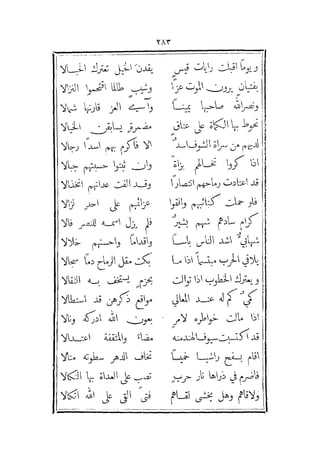 ٢٨٣
ويومًا اقبلت رايات قيس يقدن الخيل تعترك الجبالا
بفتيان يرون الموت عزّا وشيب طالما اقتحموا النزالا
ونصر الله صاحبها يمينا وآ العز قارنها شمالا
تحوط بها الكماة على عتاق مضمرة يسابقن الخيالا
لديهم من سراة الشوف اسد الا فأكرم بهم اسدًا رجالا
اذا كروا تخالهم بزاة وان ثبتوا حسبتهم جبالا
قد اعتادت رماحهم انتصارًا وقد الفت عداتهم انخذالا
فلو حملت كتائبهم والقوا عزائمهم على احد لزالا
كرام سادهم شهم بشير فلم يزل اسمه للنصر فالا
شهابي اشد الناس باسا واقدامًا واحسنهم خلالا
يلاقي الحرب مبتسمًا اذا ما بكت مقل الرماح دمًا سجالا
ويعترك الخطوب اذا توالت بحزم يستخف به الثقالا
كمي كم له عند المعالي مواقع ذكرهن قد استطالا
اذا مالت خواطره لامر بعون الله ادركه ونالا
قد اكتسبت سيوف الهند منه مضاء والمثقفة اعتدالا
اقام بسفح راشيا خميسا تخاف الدهر سطوته منالا
فاضرم في ذراها نار حرب تصب على العداة بها النكالا
ولاقاهم وهل يخشى لقاهم فتى القى على الله اتكالا